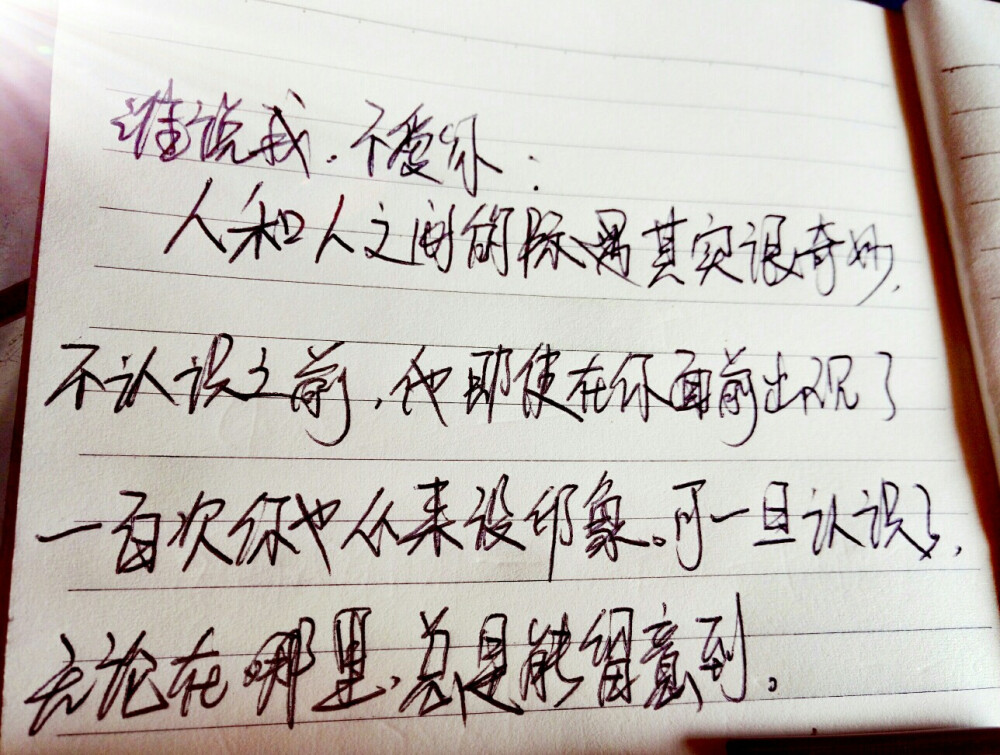 谁说我.不爱你:
人和人之间的际遇其实很奇妙,
不认识之前,他即使在你面前出现了
一百次你也从来没印象。可一旦认识了,
无论在哪里,总是能留意到。